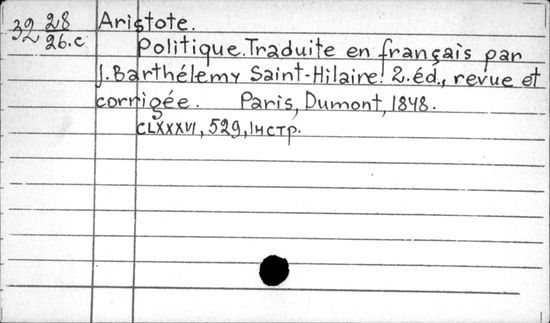 32 28/26.c Aristote.
Politique. Traduite en français par
J. Barthélemy Saint-Hilaire. 2. éd., revue et
corrigée. Paris, Dumont, 1848.
CLXXXVI, 529, IнCTр.